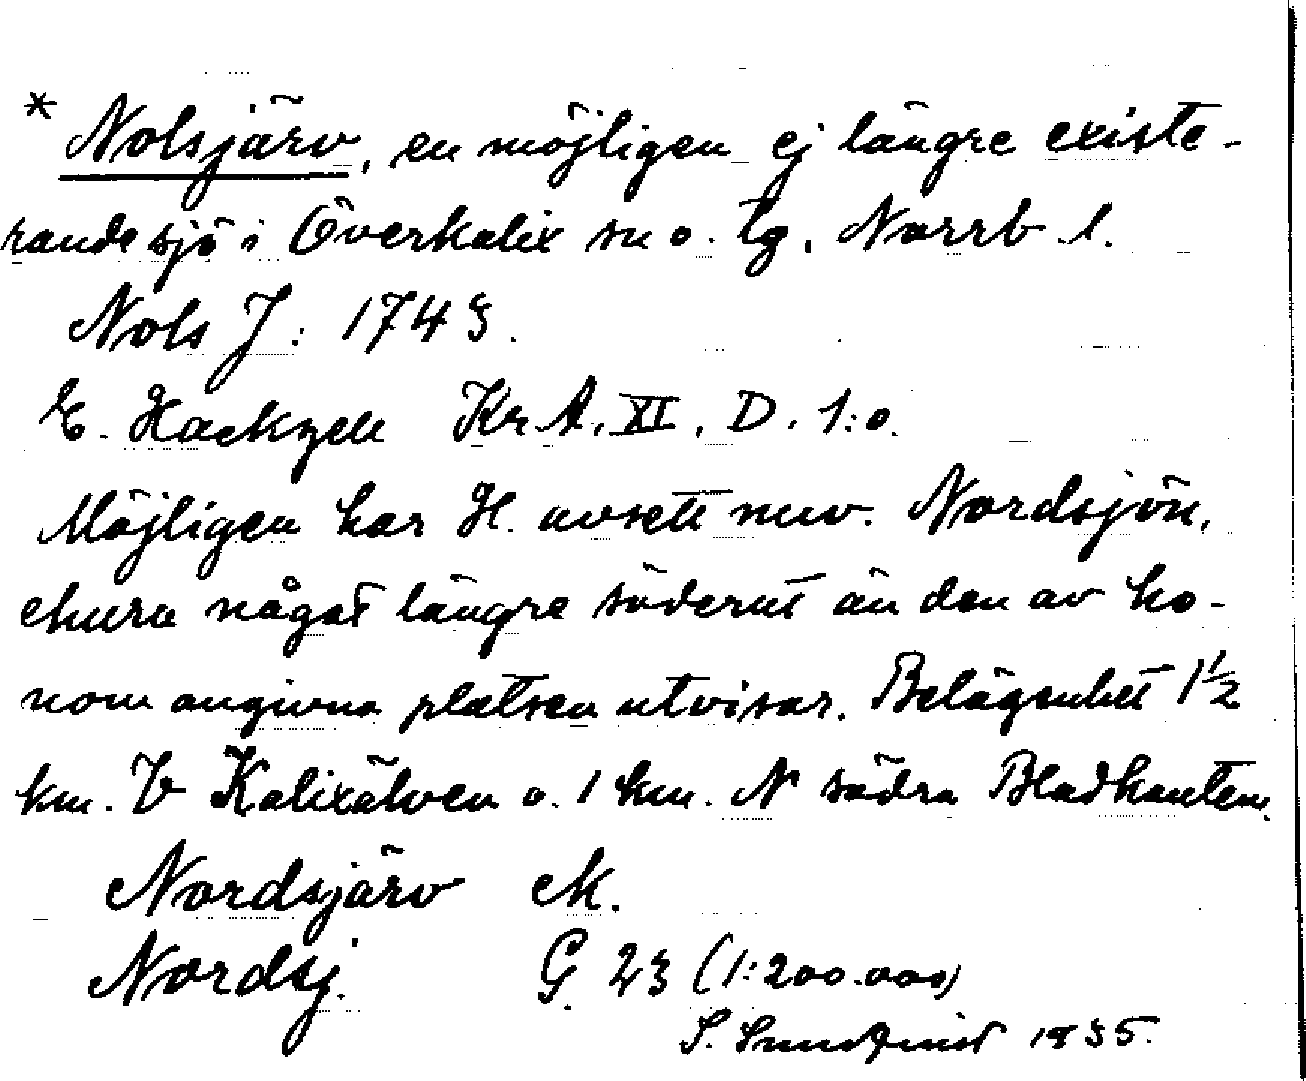 * Nolsjärv, en möjligen ej längre existe-
rande sjö i Överkalix sn o. tg. Norrb. l.
Nols J: 1743.
E. Hackzell Kr. A. XI. D. 1:o.
Möjligen har H. avsett nuv. Nordsjön,
ehuru något längre söderut än den av ho-
nom angivna platsen utvisar. Belägenhet 1½
km. V Kalixälven o. 1 km. N södra Bladkanten.
Nordsjärv ek.
Nordsj. G. 23 (1:200.000)
S. Sundqvist 1935.